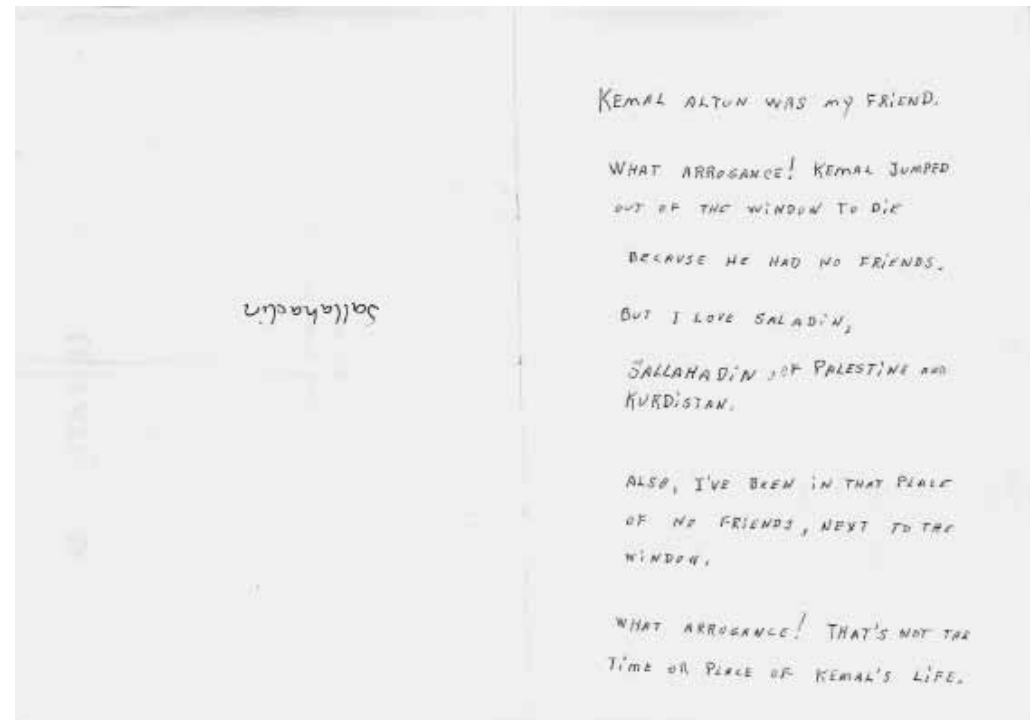 Sallahadin
KEMAL ALTUN WAS MY FRIEND.
WHAT ARROGANCE! KEMAL JUMPED
OUT OF THE WINDOW TO DIE
BECAUSE HE HAD NO FRIENDS.
BUT I LOVE SALADIN,
SALLAHADIN, OF PALESTINE AND
KURDISTAN.
ALSO, I'VE BEEN IN THAT PLACE
OF NO FRIENDS, NEXT TO THE
WINDOW.
WHAT ARROGANCE! THAT'S NOT THE
TIME OR PLACE OF KEMAL'S LIFE.